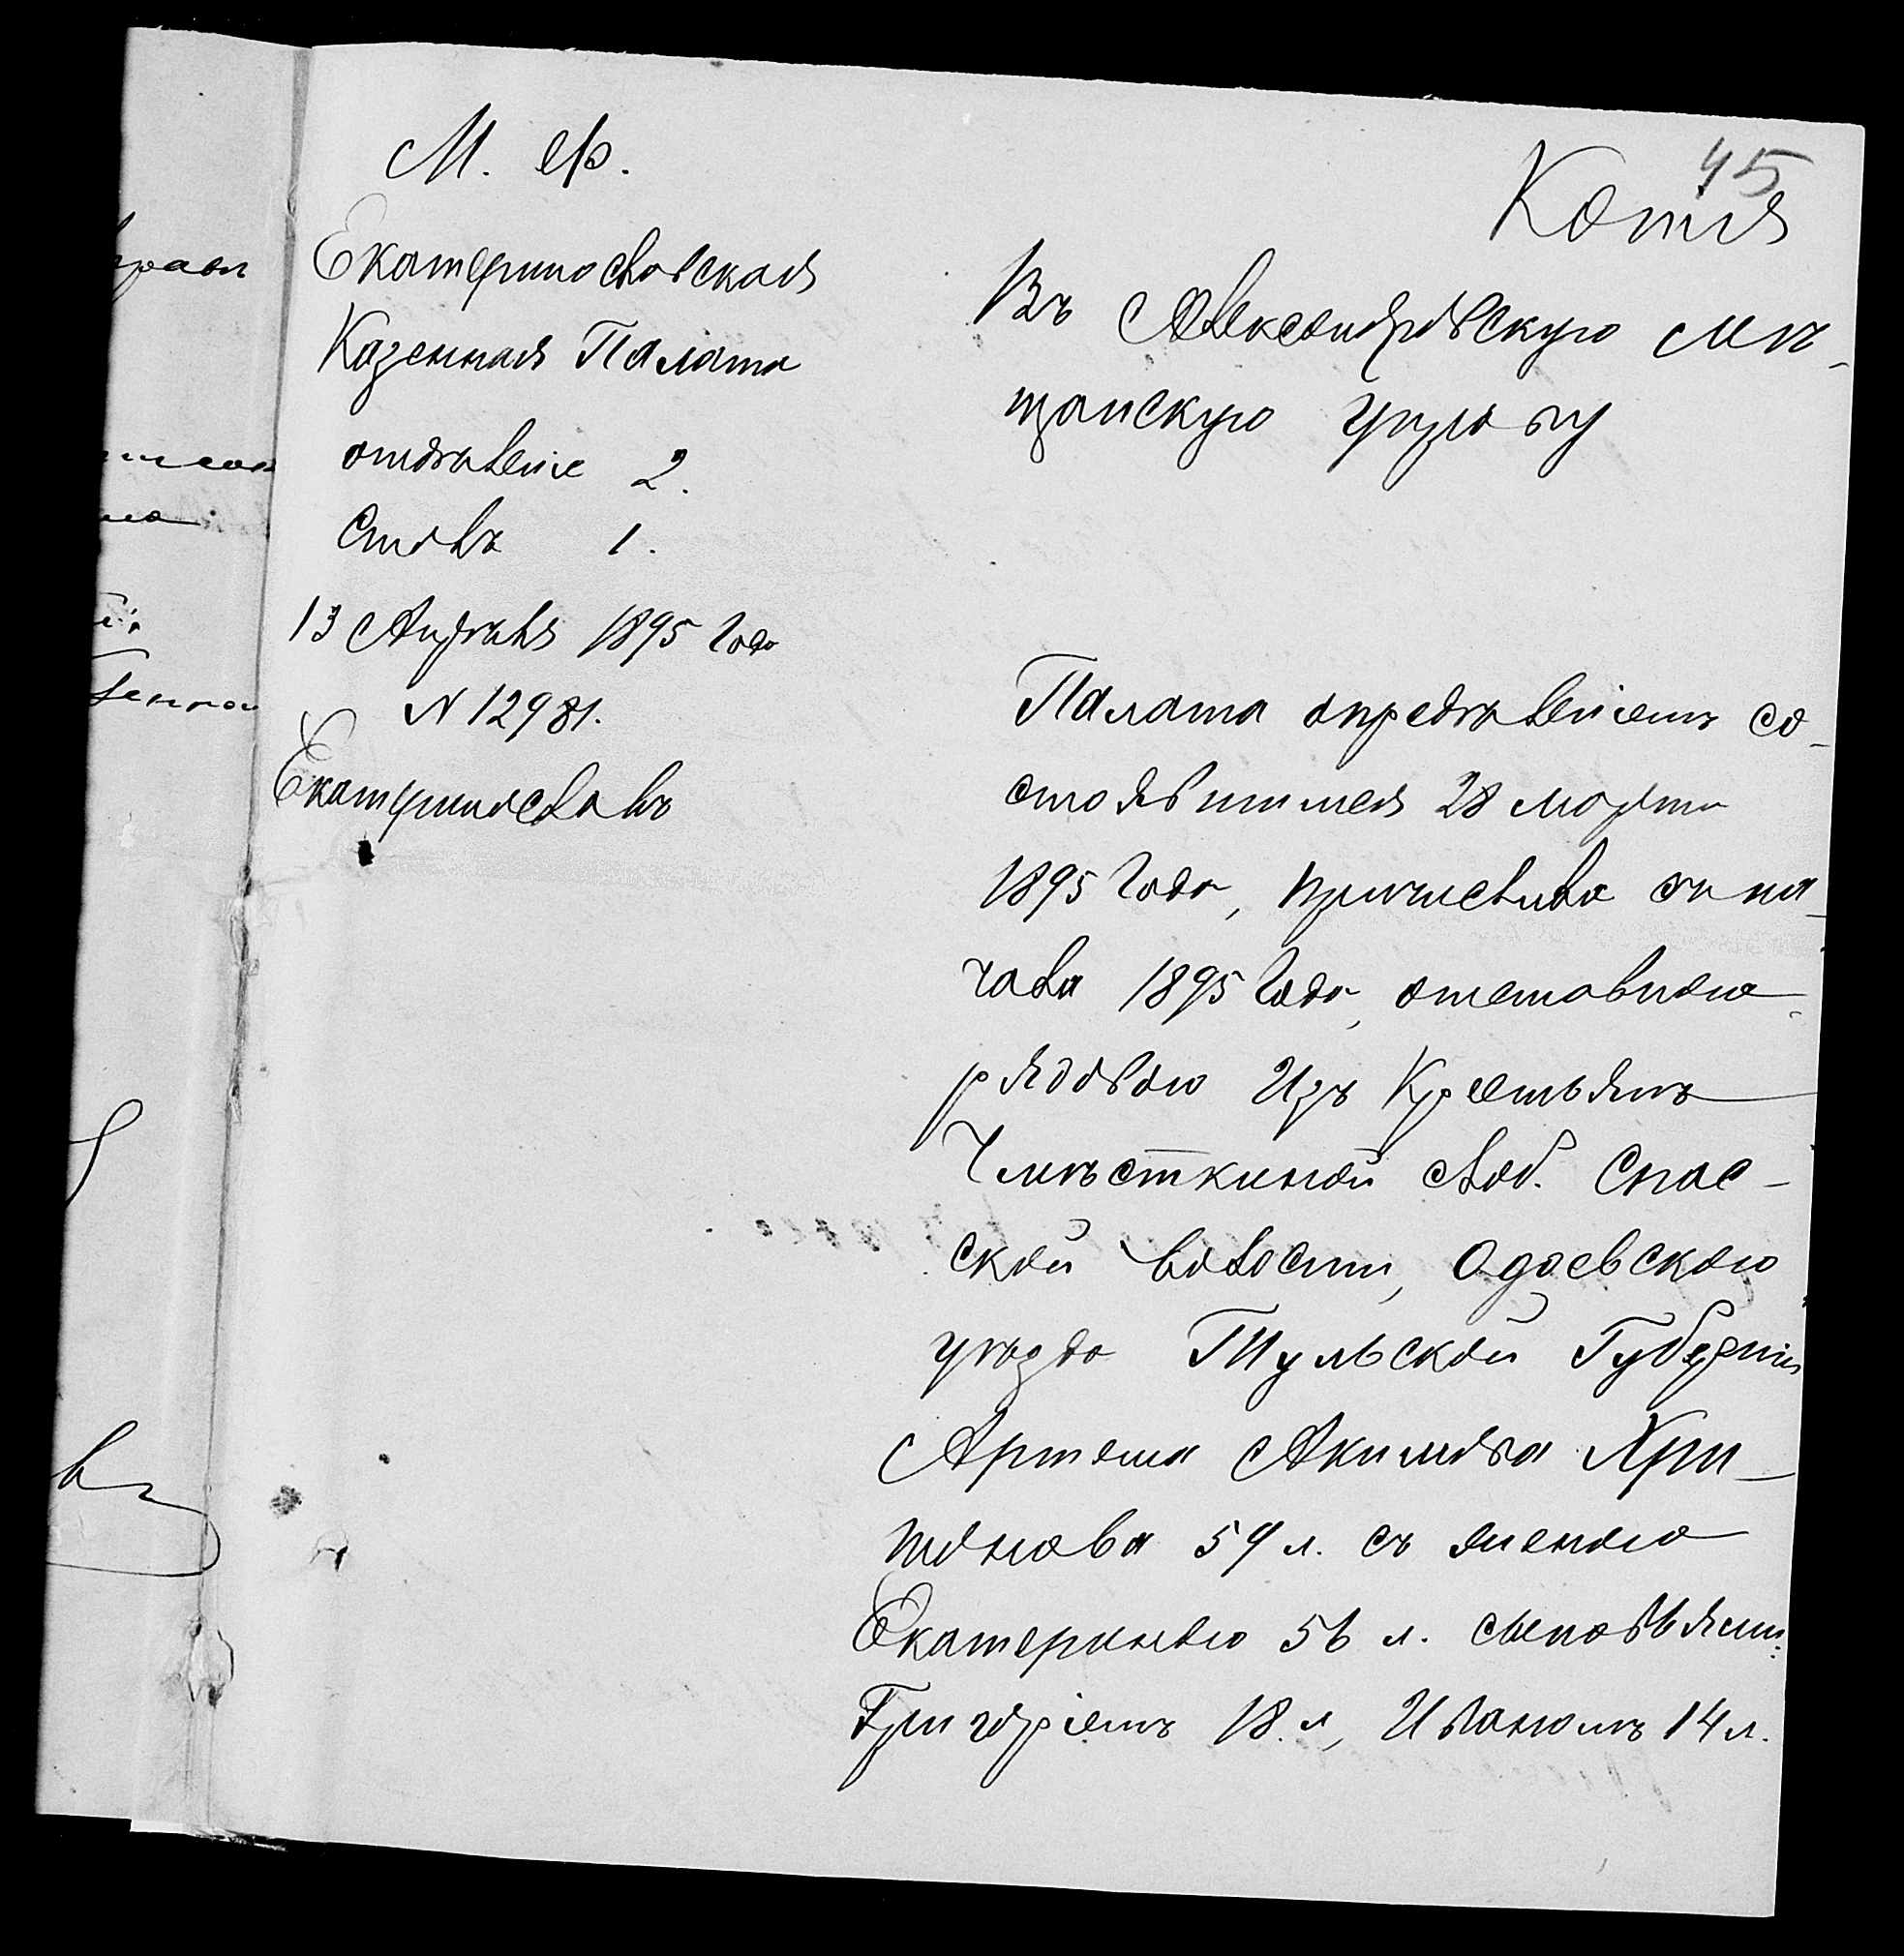 45
Копія
М. Ф.
Екатеринославская
Казенная Палата
отдѣленіе 2.
Столъ 1.
13 Апрѣля 1895 года
N 12981.
Екатеринославъ
Въ Александровскую мѣ-
щанскую управу
Палата опредѣленіемъ со-
стоявшимся 28 марта
1895 года, причислила съ на-
чала 1895 года, отставного
рядового Изъ Крестьянъ
слоб. Спас-
ской волости, Одоевского
уѣзда Тульской Губерніи
Артема Акимова Хри-
тонова 59 л. съ женою
Екатериною 56 л. сыновьями:
Григоріемъ 18 л, Иваномъ 14 л.